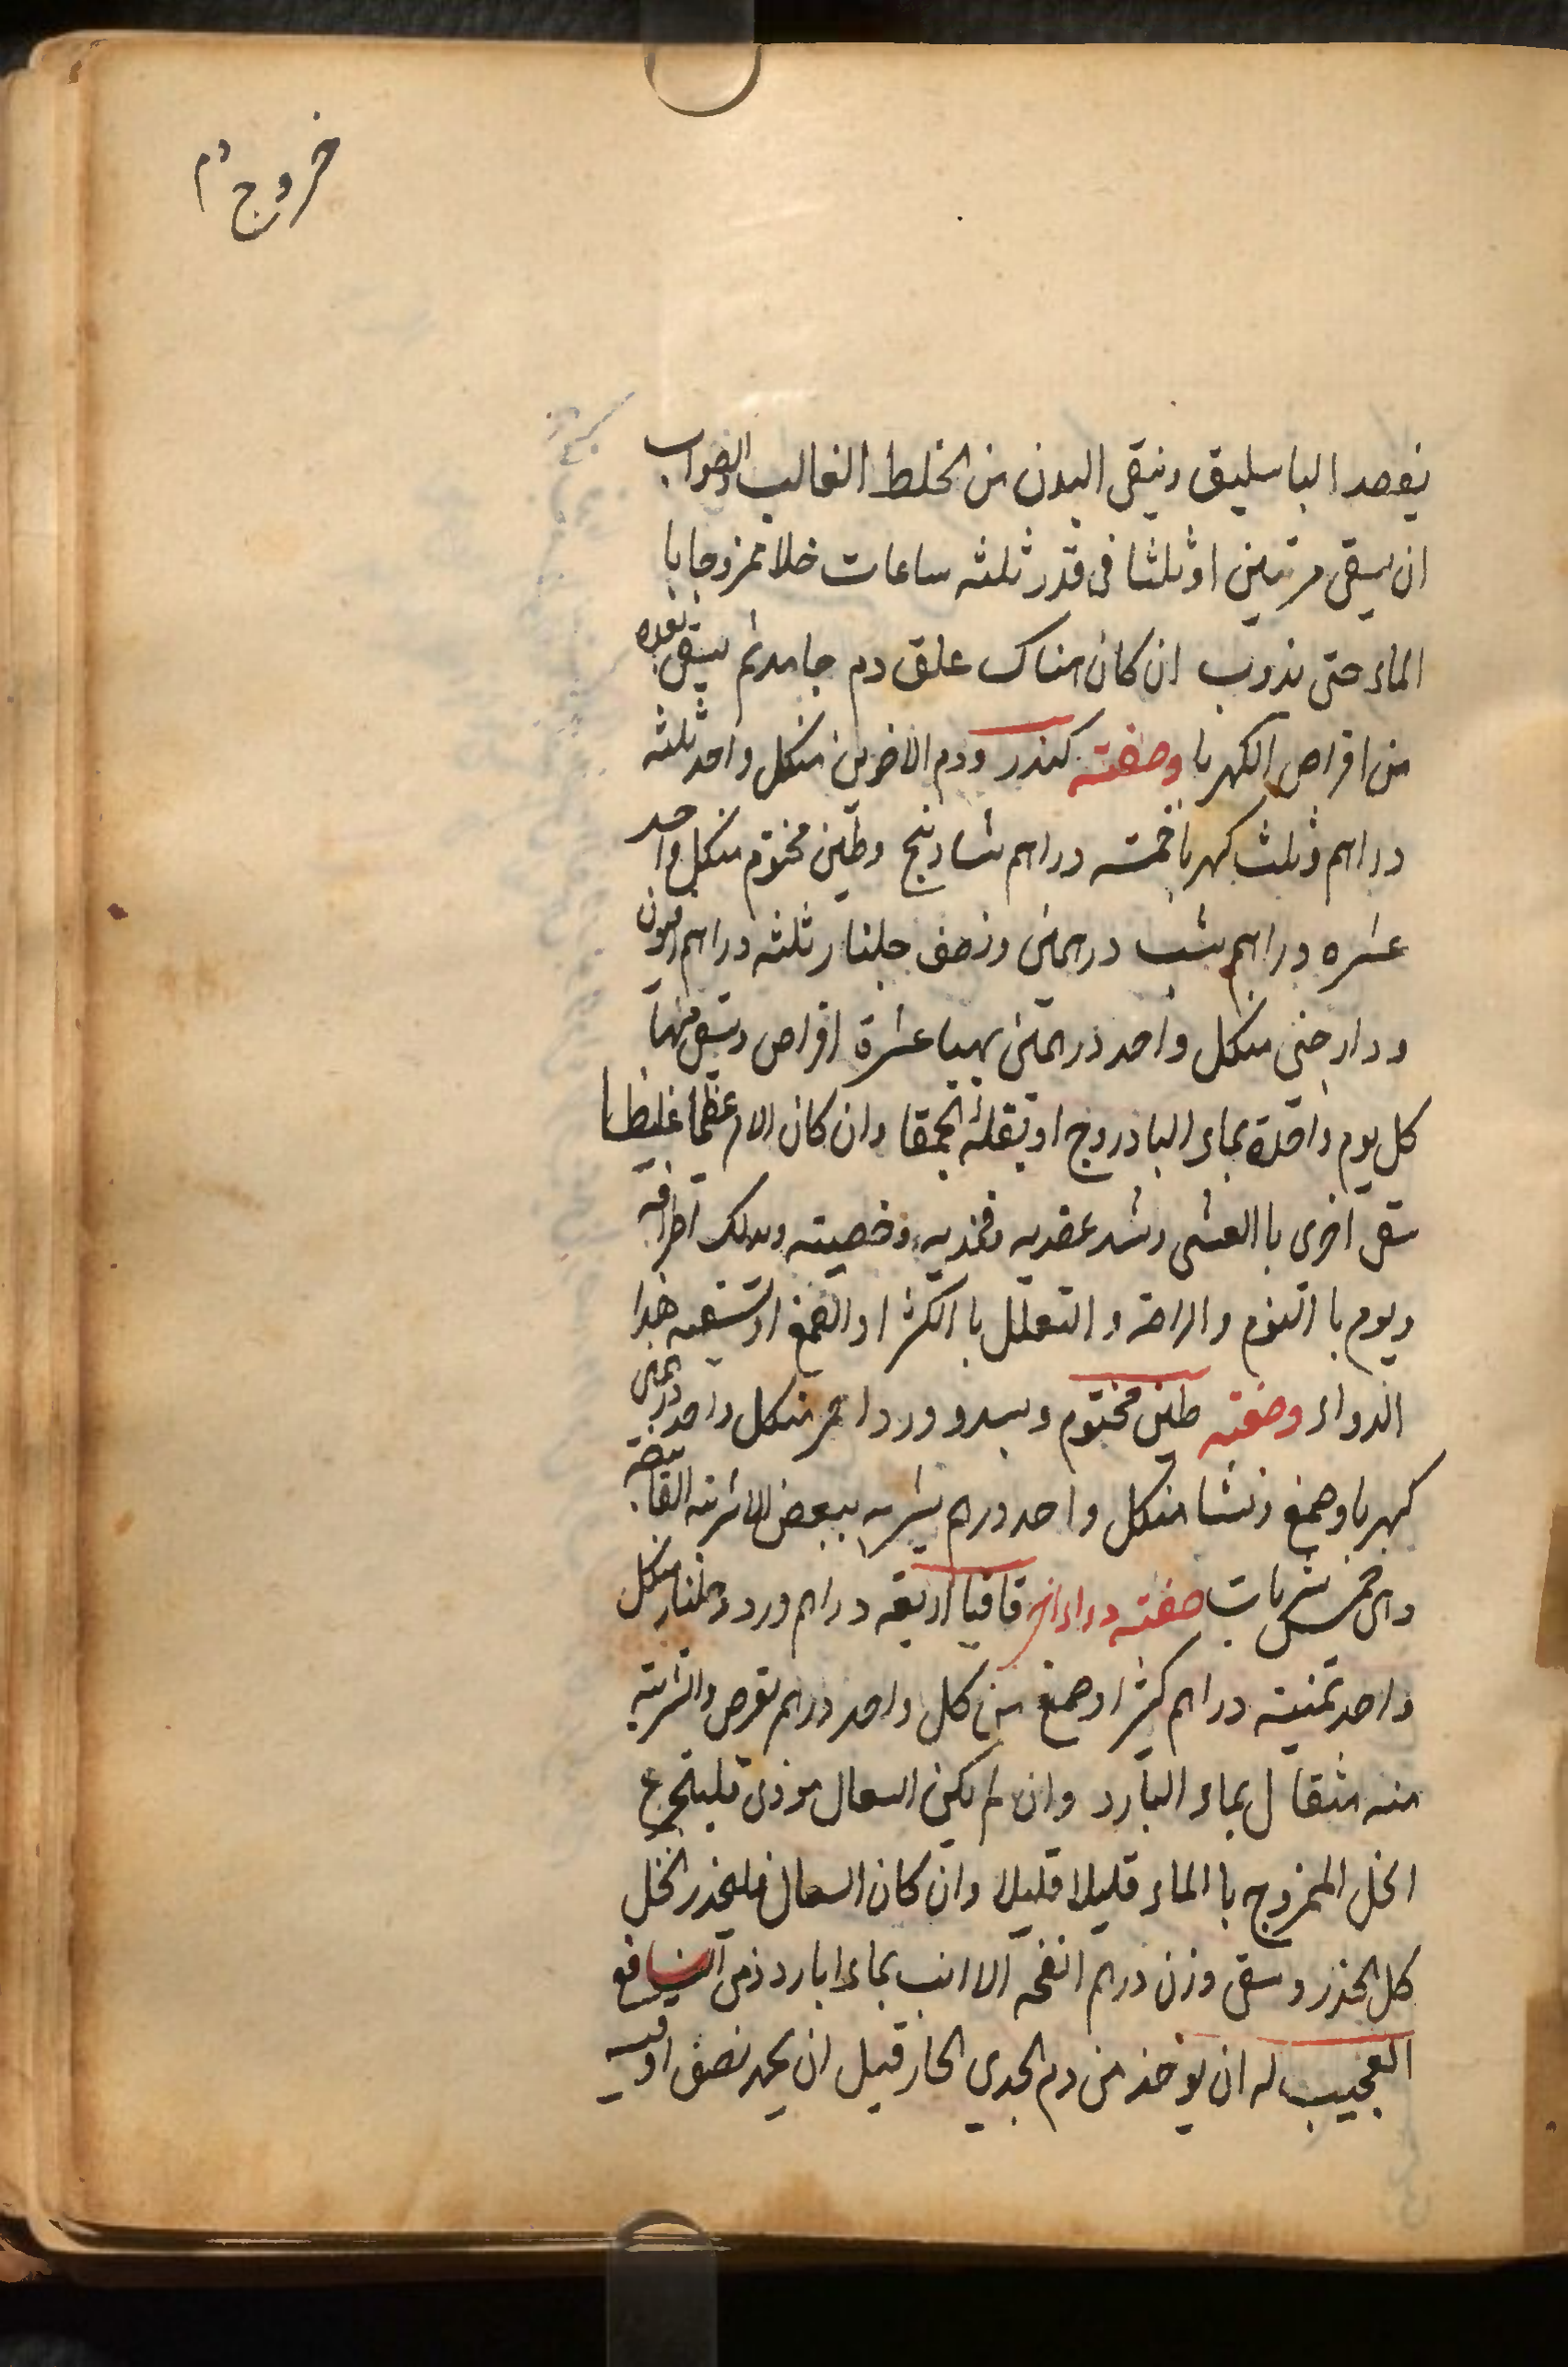 خروج دم
يفصد الباسليق وينقى البدن من الخلط الغالب والصواب
ان يسقى مرتين او ثلثا فى قدر ثلثه ساعات خلا ممزوجا با
الماء حتى يذوب ان كان هناك علق دم جامد ثم يسقى بعده
من اقراص الكهربا وصفته كندر ودم الاخوين منكل واحد ثلثه
دراهم وثلث كهربا خمسه دراهم شادنج وطين مختوم منكل واحد
عشره دراهم شب درهمين ونصف جلنار ثلثه دراهم افيون
ودارصنى منكل واحد درهمين يهيا عشرة اقراص ويسقى منها
كل يوم واحدة بماء الباذروج او بقلة الحمقا وان كان الامر عظيما غليظا
سقى اخرى با العشى وشد عضديه وفخذيه وخصيته ويدلك اطرافه
ويوم با النوم والراحة و التعلل با الكثرا والصمغ او تسقيه هذا
الدواء وصفته طين مختوم وبسد وورد احمر منكل واحد درهمين
كهربا وصمغ ونشا منكل واحد درهم يشربه ببعض الاشربه القابضه
وهى خمس شربات صفته دواء اخر قاقيا اربعه دراهم ورد وجلنار منكل
واحد ثمنيه دراهم كثرا وصمغ من كل واحد درهم يقرص والشربه
منه مثقال بماء البارد وان لم يكن السعال موذى فليتجرع
الخل الممزوج با الماء قليلا قليلا وان كان السعال فليحذر الخل
كل الحذر وسقى وزن درهم انفحه الارنب بماء ابارد ومن النافع
العجيب له ان يوخذ من دم الجدي الحار قبل ان يجمد نصف اوقيه